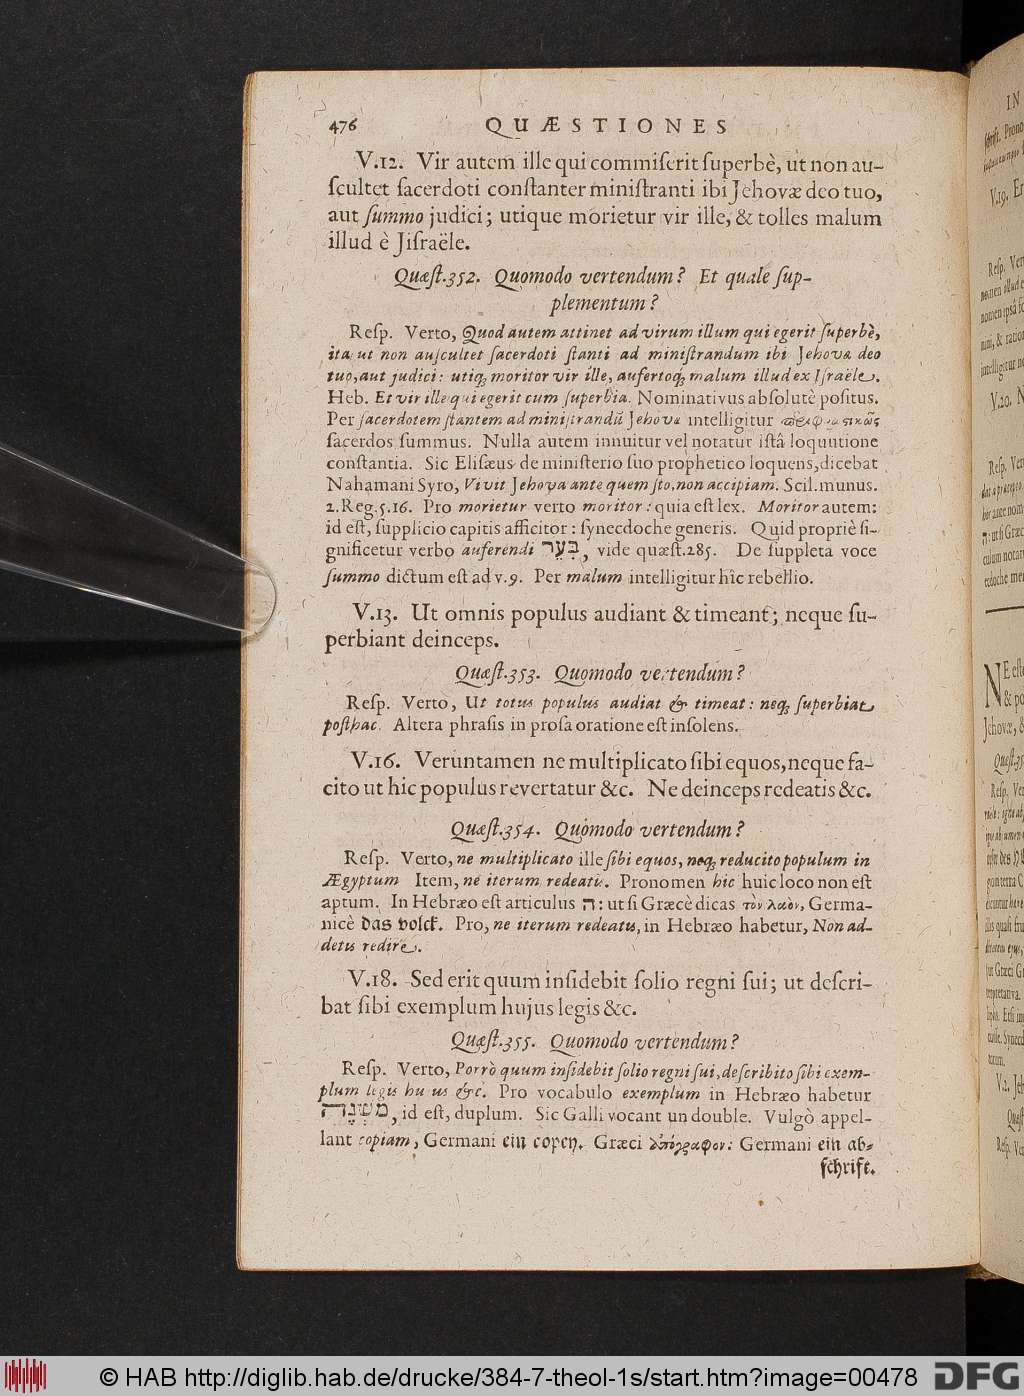 476 QUÆSTIONES
V.12. Vir autem ille qui commiſerit ſuperbè, ut non au-
ſcultet ſacerdoti conſtanter miniſtranti ibi Jehovæ deo tuo,
aut ſummo judici; utique morietur vir ille, & tolles malum
illud è Jiſraële.
Quæſt.352. Quomodo vertendum? Et quale ſup-
plementum?
Reſp. Verto, Quod autem attinet ad virum illum qui egerit ſuperbè,
ita ut non auſcultet ſacerdoti ſtanti ad miniſtrandum ibi Jehovæ deo
tuo, aut judici: utiq; moritor vir ille, aufertoq; malum illud ex Iſraële.
Heb. Et vir ille qui egerit cum ſuperbia. Nominativus abſolutè poſitus.
Per ſacerdotem ſtantem ad miniſtrandũ Jehovæ intelligitur
ſacerdos ſummus. Nulla autem innuitur vel notatur iſtâ loquutione
conſtantia. Sic Eliſæus de miniſterio ſuo prophetico loquens, dicebat
Nahamani Syro, Vivit Jehova ante quem ſto, non accipiam. Scil. munus.
2.Reg.5.16. Pro morietur verto moritor: quia eſt lex. Moritor autem:
id eſt, ſupplicio capitis afficitor: ſynecdoche generis. Quid propriè ſi-
gnificetur verbo auferendi בִּעֵר, vide quæſt.285. De ſuppleta voce
ſummo dictum eſt ad v.9. Per malum intelligitur hîc rebellio.
V.13. Ut omnis populus audiant & timeant; neque ſu-
perbiant deinceps.
Quæſt.353. Quomodo vertendum?
Reſp. Verto, Ut totus populus audiat & timeat: neq; ſuperbiat
poſthac. Altera phraſis in proſa oratione eſt inſolens.
V.16. Veruntamen ne multiplicato ſibi equos, neque fa-
cito ut hic populus revertatur &c. Ne deinceps redeatis &c.
Quæſt.354. Quomodo vertendum?
Reſp. Verto, ne multiplicato ille ſibi equos, neq; reducito populum in
Ægyptum Item, ne iterum redeatis. Pronomen hic huic loco non eſt
aptum. In Hebræo eſt articulus ה: ut ſi Græcè dicas τὸν λαὸν, Germa-
nicè das volck. Pro, ne iterum redeatis, in Hebræo habetur, Non ad-
detis redire.
V.18. Sed erit quum inſidebit ſolio regni ſui; ut deſcri-
bat ſibi exemplum hujus legis &c.
Quæſt.355. Quomodo vertendum?
Reſp. Verto, Porrò quum inſidebit ſolio regni ſui, deſcribito ſibi exem-
plum legis hujus &c. Pro vocabulo exemplum in Hebræo habetur
מִשְׁנֶה, id eſt, duplum. Sic Galli vocant un double. Vulgò appel-
lant copiam, Germani ein copey. Græci ἀπόγραφον: Germani ein ab-
ſchrift.
© HAB http://diglib.hab.de/drucke/384-7-theol-1s/start.htm?image=00478
DFG